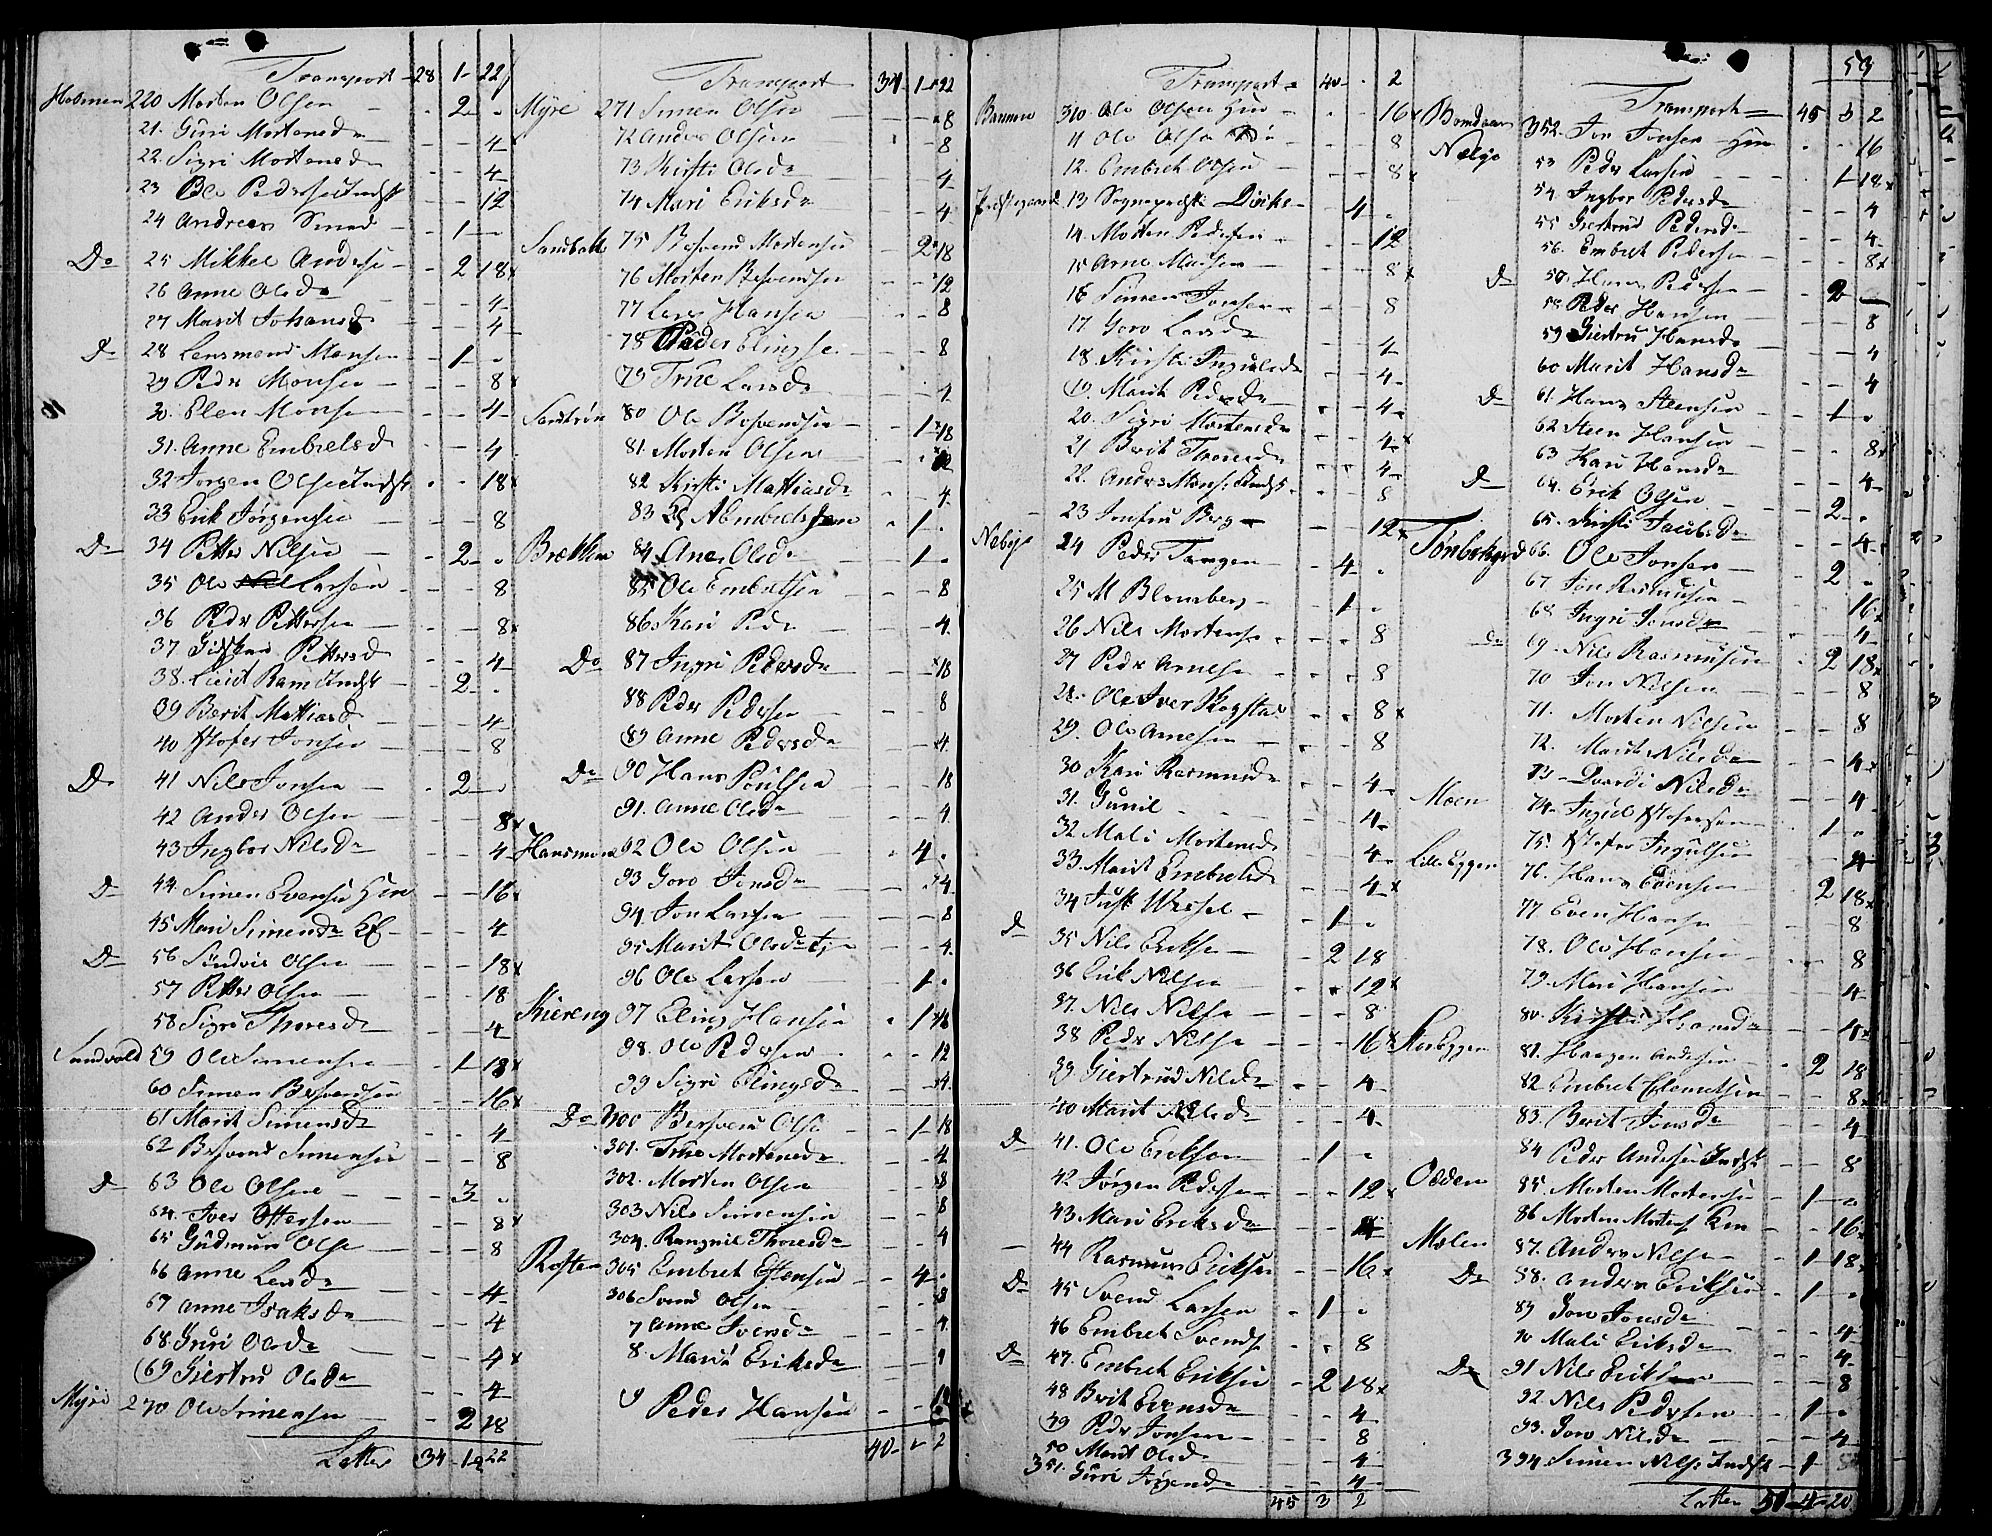 Transport 28 1 22
Holmen 220 Morten Olsen - 2 -
21. Guri Mortensd - - 4
22. Sigri Mortensd - - 4
23 Ole Pedersen Indst - - 12
24 Andreas Smed - 1 -
Do 25 Mikkel Anderse - 2 18
26 Anne Olsd - - 4
27 Marit Johansd - - 4
Do 28 Lensmand Monsen - 1 -
29 Peder Monsen - - 8
30. Elen Monsen - - 4
31. Anne Embretsd - - 4
32 Jorgen Olsen Indst - - 18
33 Erik Jørgensen - - 8
Do 34 Petter Nilsen - 2 -
35 Ole Larsen - - 8
36 Peder Pettersen - - 8
37 Pettersd - - 4
38. Indst - 2 -
39 Berit Mattiasd - - 4
40 Stofer Jonsen - - 8
Do 41 Nils Jonsen - 2 -
42 Anders Olsen - - 8
43 Ingbor Nilsd - - 4
Do 44. Simen Evensen - - 16
45 Mari Simensd - - 4
Do 56 Sindvis Olsen - - 18
57 Petter Olsen - - 18
58 Sigri Thoresd - - 4
Sandvold 59 Ole Simensen - 1 18
60 Simen Besvensen - - 16
61 Marit Simensd - - 4
62 Besvend Simensen - - 8
Do 63 Ole Olsen - 3 -
64. Iver Ottersen - - 8
65 Gudmun Olse - - 8
66 Anne Larsd - - 4
67 Anne Isaksd - - 4
68. Guri Olsd - - 4
69 Giertru Olsd - - 4
Myre 270 Ole Simensen - 2 18
Latter 34 1 22
Transport 34 1 22
Myre 271 Simen Olsen - - 8
72 Anders Olsen - - 8
73 Kirsti Olsd - - 4
74 Mari Eriksd - - 4
Sandbak 75 Besvend Mortensen - 2 18
76 Morten Besvendsen - - 12
77 Lars Hansen - - 8
78 Peder Elingse - - 8
79 Trine Larsd - - 4
80 Ole Besvendsen - 1 18
81. Morten Olsen - - 12
82 Kirsti Mattiasd - - 4
83 - 1 -
Brækken 84 Ane Olsd - 1 -
85 Ole Embretsen - - 8
86 Kari Pedr - - 4
Do 87 Ingri Pedersd - - 18
88 Peder Pedersen - - 8
89 Anne Pedersd - - 4
Do 90 Hans Poulsen - - 18
91. Anne Olsd - - 4
Hansmoen 92 Ole Olsen - 4 -
93 Goro Jonsd - - 4
94 Jon Larsen - - 8
95 Marit Olsd - - 4
96 Ole Larsen - 1 -
Kiereng 97 Eling Hansen - 1 16
98. Ole Pedersen - - 12
99 Sigri Elingsd - - 4
Do 300 Besvend Olse - 1 18
301. Trine Mortensd - - 4
302. Morten Olsen - - 8
303 Nils Simensen - - 8
304. Rangnil Thoresd - - 4
Rosten 305 Embret Estensen - 4 -
306 Svend Olsen - - 8
7 Anne Iversd - - 4
8. Marit Eriksd - - 4
9 Peder Hansen - - 12
40 - 2
Transport 40 - 2
310 Ole Olsen - - 16
11 Ole Olsen - - 8
12. Embret Olsen - - 8
Præstegaard 13 Sognepræst Dircks - 4 -
14. Morten Pedersen - - 12
15 Arne Madsen - - 8
16 Simen Jonsen - - 8
17. Goro Larsd - - 4
18. Kirsti Ingulsd - - 4
19. Marit Pedersd - - 4
20. Sigri Mortensd - - 4
21 Berit Thoresd - - 4
22. Anders Monse Indst - - 8
23 Jonfru Berg - - 12
Nebye 24 Peder Tangen - 4 -
25 M Blomberg - 1 -
26 Nils Mortense - - 8
27 Peder Arnese - - 8
28 Ole Iver Kogstad - - 8
29. Ole Arnesen - - 8
30 Kari Rasmusd - - 4
31. Gunil - - 4
32 Mali Mortensd - - 4
33. Marit Embretsd - - 4
34 Just Wessel - 1 -
Do 35 Nils Erikse - 2 18
36 Erik Nilsen - - 12
37. Nils Nilse - - 8
38 Peder Nilse - - 16
39. Giertrud Nilsd - - 4
40 Marit Nilsd - - 4
Do 41. Ole Eriksen - 1 -
42 Jørgen Pedersen - - 12
43. Mari Eriksd - - 4
44 Rasmus Eriksen - - 16
Do 45 Svend Larsen - 1 -
46 Embret Svends - - 8
Do 47. Embret Eriksen - 2 18
48 Berit Evensd - - 4
49 Peder Jonsen - - 8
50 Marit Olsd - - 4
351. Guri Jørgensd - - 4
45 3 2
53
Transport 45 3 2
352. Jon Jonsen - - 16
Nelye 53 Peder Larsen - 1 18
54. Ingbor Pedersd - - 4
55 Giertrud Pedersd - - 4
56. Embret Pedersen - - 8
Do 57. Hans Pedersen - 2 -
58 Peder Hansen - - 8
59 Giertru Hansd - - 4
60 Marit Hansd - - 4
Do 61. Hans Steensen - 1 -
62 Steen Hansen - - 8
63 Kari Hansd - - 4
Do 64. Erik Olsen - 2 -
65. Kirsti Jacobsd - - 4
66. Ole Jonsen - 2 -
67 Jon Rasmusen - - 16
68. Ingri Jonsd - - 4
Do 69. Nils Rasmusen - 2 18
70 Jon Nilsen - - 8
71. Morten Nilsen - - 8
72. Marit Nilsd - - 4
73 Nilsd - - 4
Moen 74. Ingul Stofersen - 1 -
75. Stofer Ingulsen - - 4
Lilleeggen 76. Hans Evensen - 2 18
77 Even Hanse - - 8
78. Ole Hansen - - 8
79 Mari Hansen - - 4
80. Kirsti Hansd - - 4
Storeggen 81. Haagen Andersen - 2 18
82 Embret - - 8
83. Berit Jonsd - - 4
84 Peder Andersen Indst - - 8
Odden 85. Morten Mortensen - 1 -
86 Morten Mortens - - 16
Molen 87. Anders Nilse - 1 18
Do 88. Anders Eriksen - 1 -
89 Goro Jonsd - - 4
90 Mali Eriksd - - 4
Do 91 Nils Eriksen - - 8
92 Nils Pedersen - 1 -
93. Goro Nilsd - - 4
394 Simen Nilse Indst - 1 8
Latter 51 4 20